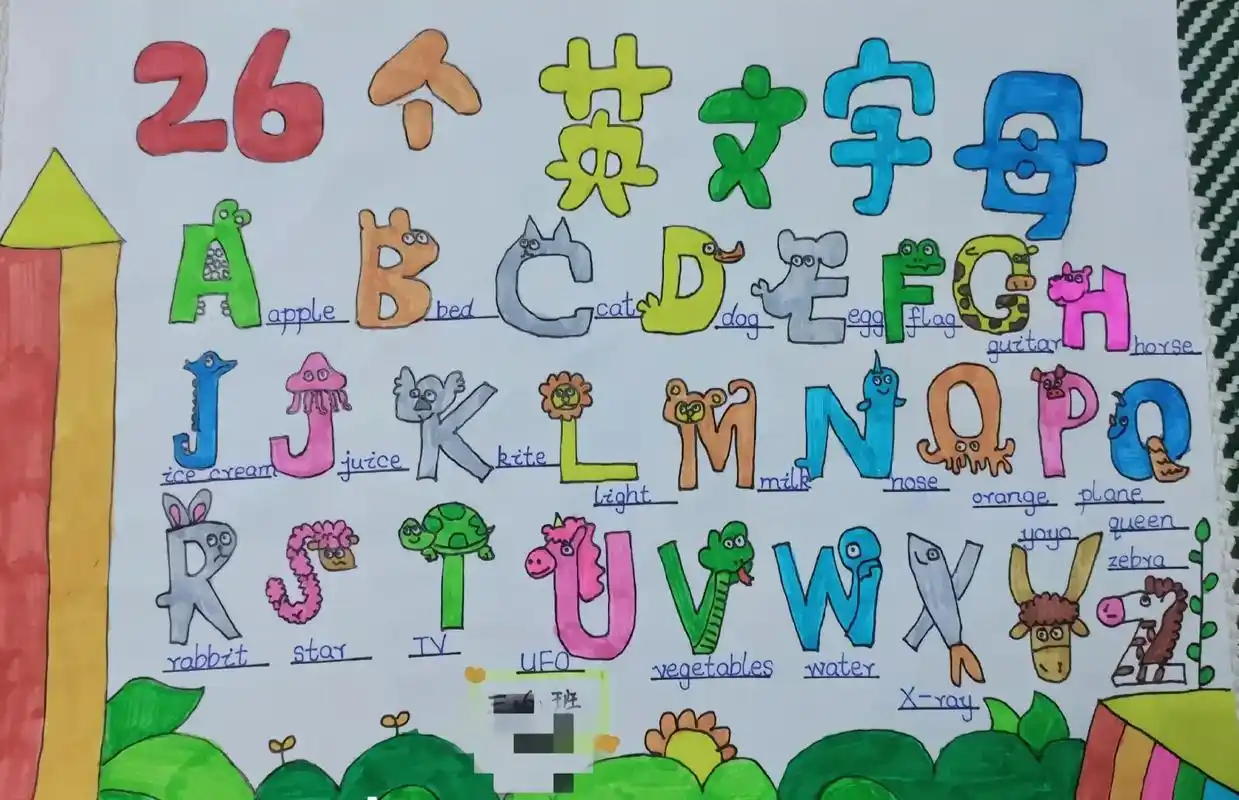 26个英文字母
A B C D E F G H
apple bed cat dog egg flag guitar horse
J J K L M N O P Q
ice cream juice kite light milk nose orange plane queen
R S T U V W X Y Z
rabbit star TV UFO vegetables water X-ray yoyo zebra
班